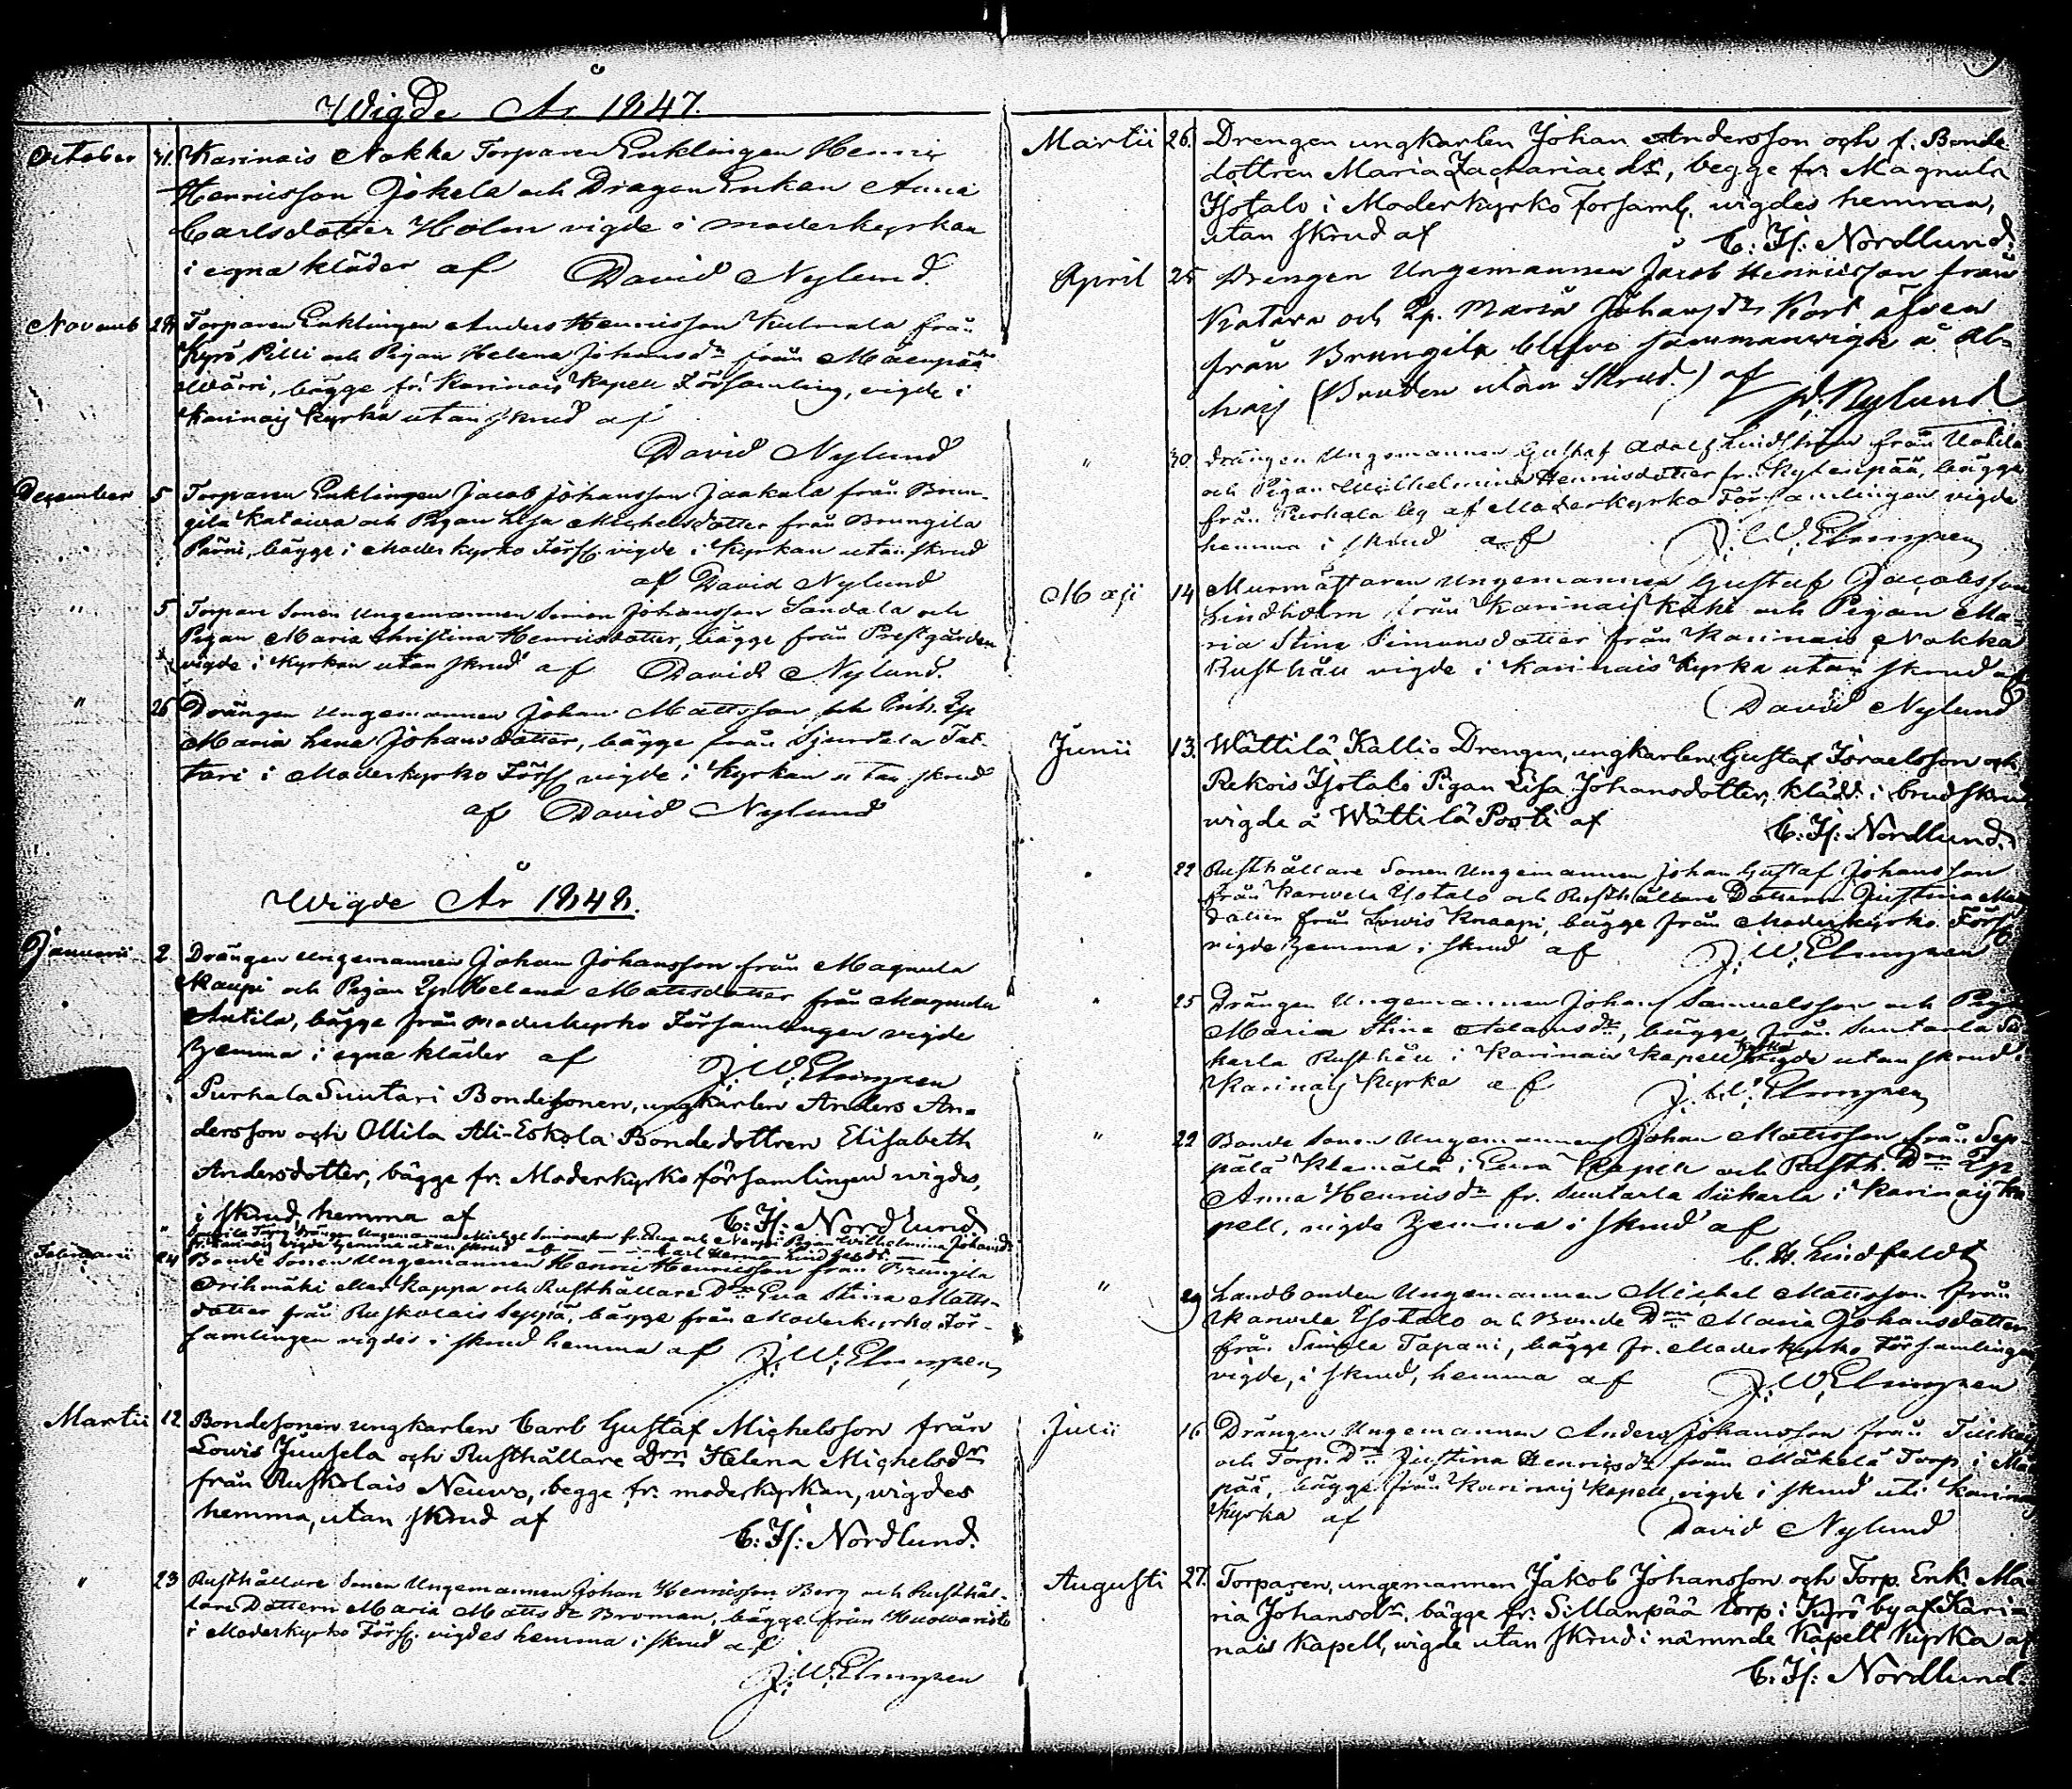 Wigde År 1847.
October 31. Karinais Nokka Torparen Enklingen Henric
Henricsson Jokela och Dragon Enkan Anna
Carlsdotter Holm vigde i moderkyrkan
i egna kläder af David Nylund.
Novemb 28 Torparen Enklingen Anders Henricsson Kulmala från
Kyrö Pilli och Pigan Helena Johansdr från Mäenpää
bägge fr. Karinais Kapell Församling, vigde i
Karinais Kyrka utan skrud af
David Nylund
December 5 Torparen Enklingen Jacob Johansson Jaakala från Brun-
gila Katawa och Pigan Lisa Michelsdotter från Brungila
Pärni, bägge i Moderkyrko Förs. vigde i Kyrkan utan skrud
af David Nylund
" 5 Torpare Sonen Ungemannen Simon Johansson Sandala och
Pigan Maria Christina Henricsdotter, bägge från Prestgården
vigde i Kyrkan utan skrud af David Nylund.
" 26 Drängen Ungemannen Johan Mattsson och Inh. Qp
Maria Lena Johansdotter, bägge från Tat-
tari i Moderkyrko Förs. vigde i Kyrkan utan skrud
af David Nylund
Wigde År 1848.
Januarii 2 Drängen Ungemannen Johan Johansson från Magnula
Kaupi och Pigan Qp Helena Mattsdotter från Magnula
Antila, bägge från Moderkyrko Församlingen vigde
hemma i egna kläder af J. W. Elmgren
" Purhala Suutari Bondesonen, ungkarlen Anders An-
dersson och Ollila Ali-Eskola Bondedottren Elisabeth
Andersdotter, bägge fr. Moderkyrkoförsamlingen wigdes,
i skrud, hemma af C: Fs: Nordlund
" Torp. Drängen Ungemannen Michel Simonsson fr. och Pigan Wilhelmina Johansdr
fr. Karinais vigde hemma utan skrud af Carl Herman Lindfeldt.
Februarii 24 Bonde Sonen Ungemannen Henric Henricsson från Brungila
Orihmäki eller Kappa och Rusthållare Drn Eva Stina Matts-
dotter från Ruskolais Seppä, bägge från Moderkyrko För-
samlingen vigdes i skrud hemma af J. W. Elmgren
Martii 12 Bondesonen ungkarlen Carl Gustaf Michelsson från
Lowis Juusela och Rusthållare Drn Helena Michelsdr
från Ruskolais Neuwo, begge fr. moderkyrkan, wigdes
hemma, utan skrud af C: Fs: Nordlund.
" 23 Rusthållare Sonen Ungemannen Johan Henricsson Berg och Rusthål-
lare Dottern Maria Mattsdr Broman, bägge från
i Moderkyrko Förs. vigdes hemma i skrud af
J. W. Elmgren
Martii 26. Drengen ungkarlen Johan Andersson och f. Bonde
dottren Maria Zachariae dr, begge fr. Magnula
Isotalo i Moderkyrko Församl. wigdes hemma,
utan skrud af C: Fs: Nordlund.
April 25 Drengen Ungemannen Jacob Henricsson från
Katawa och Qp. Maria Johansdr Kort äfven
från Brungila blefvo sammanvigde å
(Bruden utan Skrud.) af D. Nylund
" 30 Drängen Ungemannen Gustaf Adolf Lindström från
och Pigan Wilhelmina Henricsdotter fr. Kylenpää, bägge
från Purhala by af Moderkyrko Församlingen vigde
hemma i skrud af J. W. Elmgren
Maji 14 Murmästaren Ungemannen Gustaf Jacobsson
Lindholm från Karinais och Pigan Ma-
ria Stina Simonsdotter från Karinais Nokka
Rusthåll vigde i Karinais Kyrka utan skrud af
David Nylund
Junii 13. Wättilä Kallio Drengen, ungkarlen Gustaf Israelsson och
Rekois Isotalo Pigan Lisa Johansdotter, klädd i brudskrud
wigde å Wättilä Posti af C: Fs: Nordlund.
22 Rusthållare Sonen Ungemannen Johan Gustaf Johansson
från Karwela Ylotalo och Rusthållare Dottern Justina
dotter från Lowis Knaapi, bägge från Moderkyrko Förs.
vigde hemma i skrud af J. W. Elmgren
" 25 Drängen Ungemannen Johan Samuelsson och Pigan
Maria Stina Adamsdr, bägge från Suntarla Sii-
karla Rusthåll i Karinais Kapell vigde utan skrud i
Karinais Kyrka af J. W. Elmgren
" 22 Bonde Sonen Ungemannen Johan Mattsson från Sep
pälä i Eura Kapell och Rusth. Drn Qp
Anna Henricsdr fr. Suntarla Siikarla i Karinais Ka
pell, vigde hemma i skrud af
C. H. Lindfeldt
" 29 Landbonden Ungemannen Michel Mattsson från
Karwela Ylotalo och Bonde Drn Maria Johansdotter
från Simola Tapani, bägge fr. Moderkyrko Församlingen
vigde, i skrud, hemma af J. W. Elmgren
Julii 16 Drängen Ungemannen Anders Johansson från
och Torp. Drn Justina Henricsdr från Mäkelä Torp i Mäen
pää, bägge från Karinais Kapell, vigde i skrud uti Karinais
Kyrka af David Nylund
Augusti 27. Torparen, ungemannen Jakob Johansson och Torp. Enk. Ma-
ria Johansdr, bägge fr. Sillanpää torp i Kyrö by af Kari-
nais Kapell, wigde utan skrud i nämnde Kapell Kyrka af
C: Fs: Nordlund.